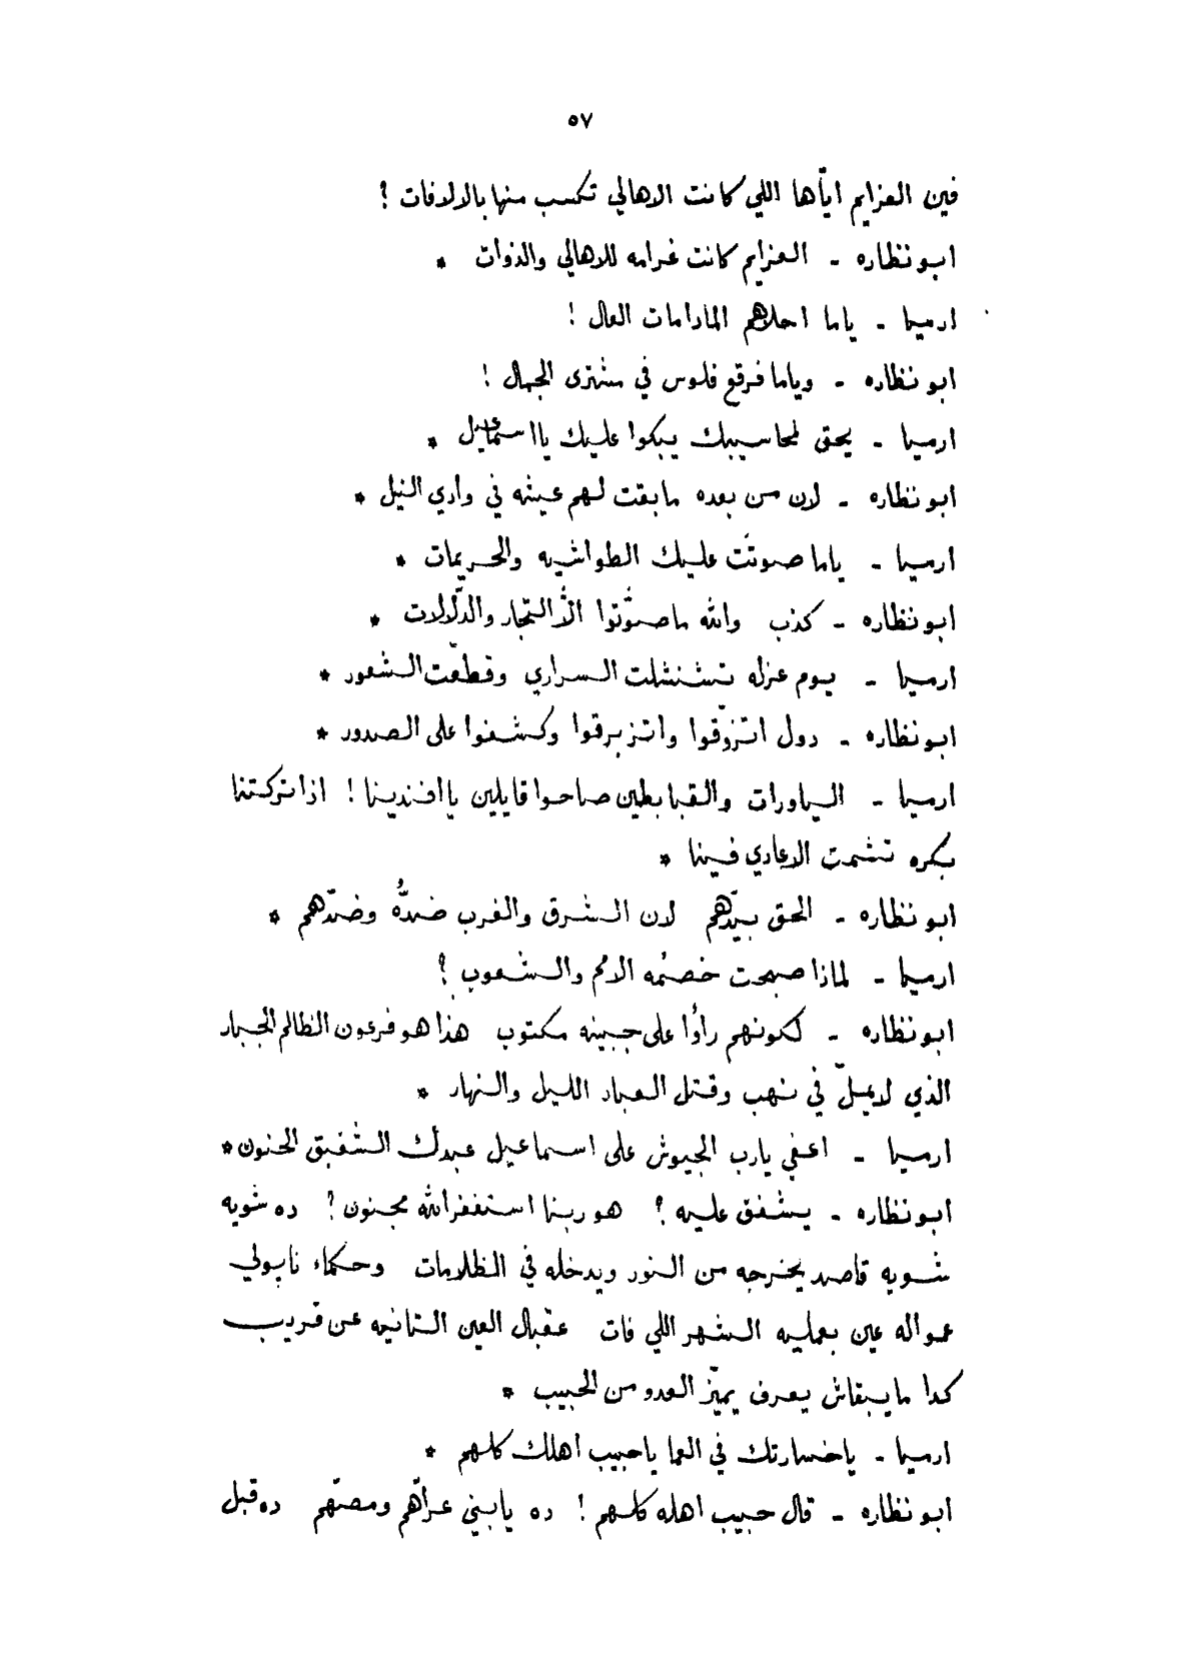 ٥٧
فين العزايم ايّاها اللي كانت الاهالي تكسب منها بالالافات ؟
ابو نظاره - العزايم كانت غرامه للاهالي والذوات *
ارميا - ياما احلاهم المادامات العال !
ابو نظاره - وياما فرقع فلوس في مشترى الجمال !
ارميا - يحق لمحاسيبك يبكوا عليك يا اسماعيل *
ابو نظاره - لان من بعده ما بقت لهم عيشه في وادي النيل *
ارميا - ياما صوتت عليك الطواشيه والحريمات *
ابو نظاره - كذب والله ما صوّتوا الّا التجّار والدّلالات *
ارميا - يوم عزله تشنشلت السراري وقطّعت الشعور *
ابو نظاره - دول اتزوّقوا واتزبرقوا وكشفوا على الصدور *
ارميا - الياورات والقبابطين صاحوا قايلين يا افندينا ! اذا تركتنا
بكره تشمت الاعادي فينا *
ابو نظاره - الحق بيدّهم لان الشرق والغرب ضدُّه وضدّهم *
ارميا - لماذا صبحت خصمُه الامم والشعوب ؟
ابو نظاره - لكونهم رأوا على جبينه مكتوب هذا هو فرعون الظالم الجبار
الذي لا يملّ في نهب وقتل العباد الليل والنهار *
ارميا - اعفي يارب الجيوش على اسماعيل عبدك الشفيق الحنون *
ابو نظاره - يشفق عليه ؟ هو ربنا استغفر الله مجنون ؟ ده شويه
شويه قاصد يخرجه من النور ويدخله في الظلامات وحكماء نابولي
عمواله عين بعمليه الشهر اللي فات عقبال العين الثانيه عن قريب
كدا ما يبقاش يعرف يميّز العدو من الحبيب *
ارميا - يا خسارتك في العما يا حبيب اهلك كلهم *
ابو نظاره - قال حبيب اهله كلهم ! ده يا بني عرّاهم ومصّهم ده قبل